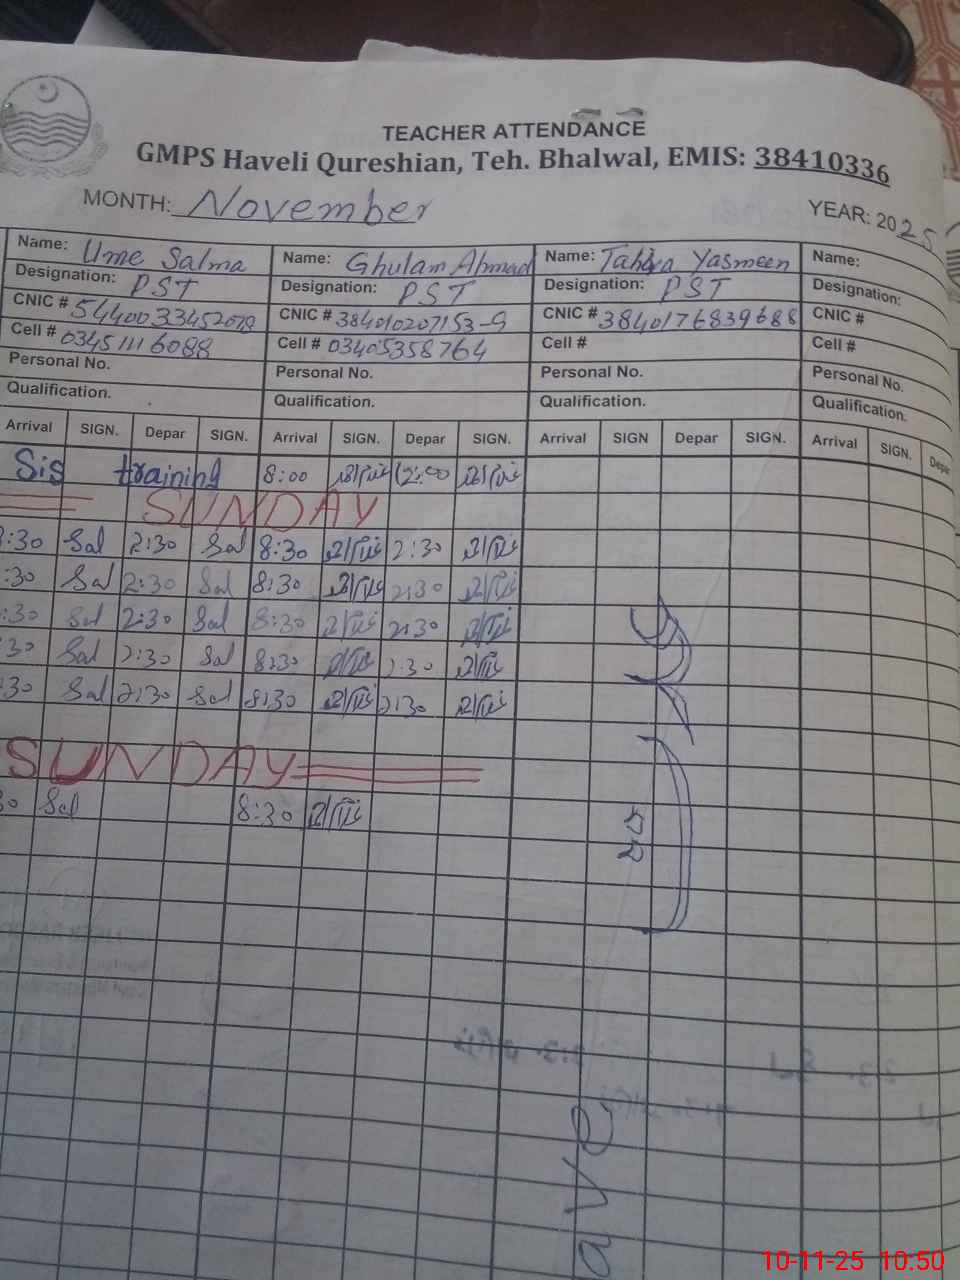 TEACHER ATTENDANCE
GMPS Haveli Qureshian, Teh. Bhalwal, EMIS: 38410336
MONTH: November YEAR: 2025
Name: Ume Salma Name: Ghulam Ahmad Name: Tahira Yasmeen Name:
Designation: PST Designation: PST Designation: PST Designation:
CNIC # 5440033452078 CNIC # 384010207153-9 CNIC # 3840176839688 CNIC #
Cell # 03451116088 Cell # 03405358764 Cell # Cell #
Personal No. Personal No. Personal No. Personal No.
Qualification. Qualification. Qualification. Qualification.
Arrival SIGN. Depar SIGN. Arrival SIGN. Depar SIGN. Arrival SIGN Depar SIGN. Arrival SIGN. Depar
Sis training 8:00 12:00
SUNDAY
8:30 Sal 2:30 Sal 8:30 2:30
:30 Sal 2:30 Sal 8:30 2:30
:30 Sal 2:30 Sal 8:30 2:30
:30 Sal 2:30 Sal 8:30 2:30
:30 Sal 2:30 Sal 8:30 2:30
SUNDAY
30 Sal 8:30
ave
10-11-25 10:50